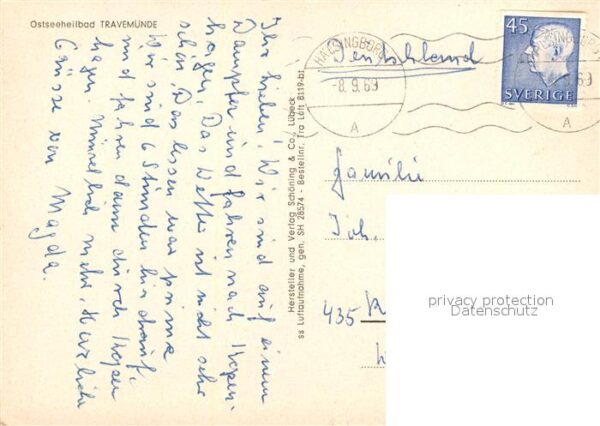 Ostseeheilbad TRAVEMÜNDE
Ihr Lieben! Wir sind auf einem
Dampfer und fahren nach Kopen-
hagen. Das Wetter ist nicht sehr
schön. Das Essen war prima
Wir sind 6 Stunden hier drauf,
und fahren dann durch Kopen
hagen. Mündlich mehr. Herzliche
Grüsse von Magda.
Hersteller und Verlag Schöning & Co., Lübeck
ss Luftaufnahme, gen. SH 28574 - Bestellnr. Tra Luft 8119-bt
HÄLSINGBORG
-8.9.69
A
45
SVERIGE
HÄLSINGBORG
69
A
Deutschland
Familie
Joh.
435
privacy protection
Datenschutz